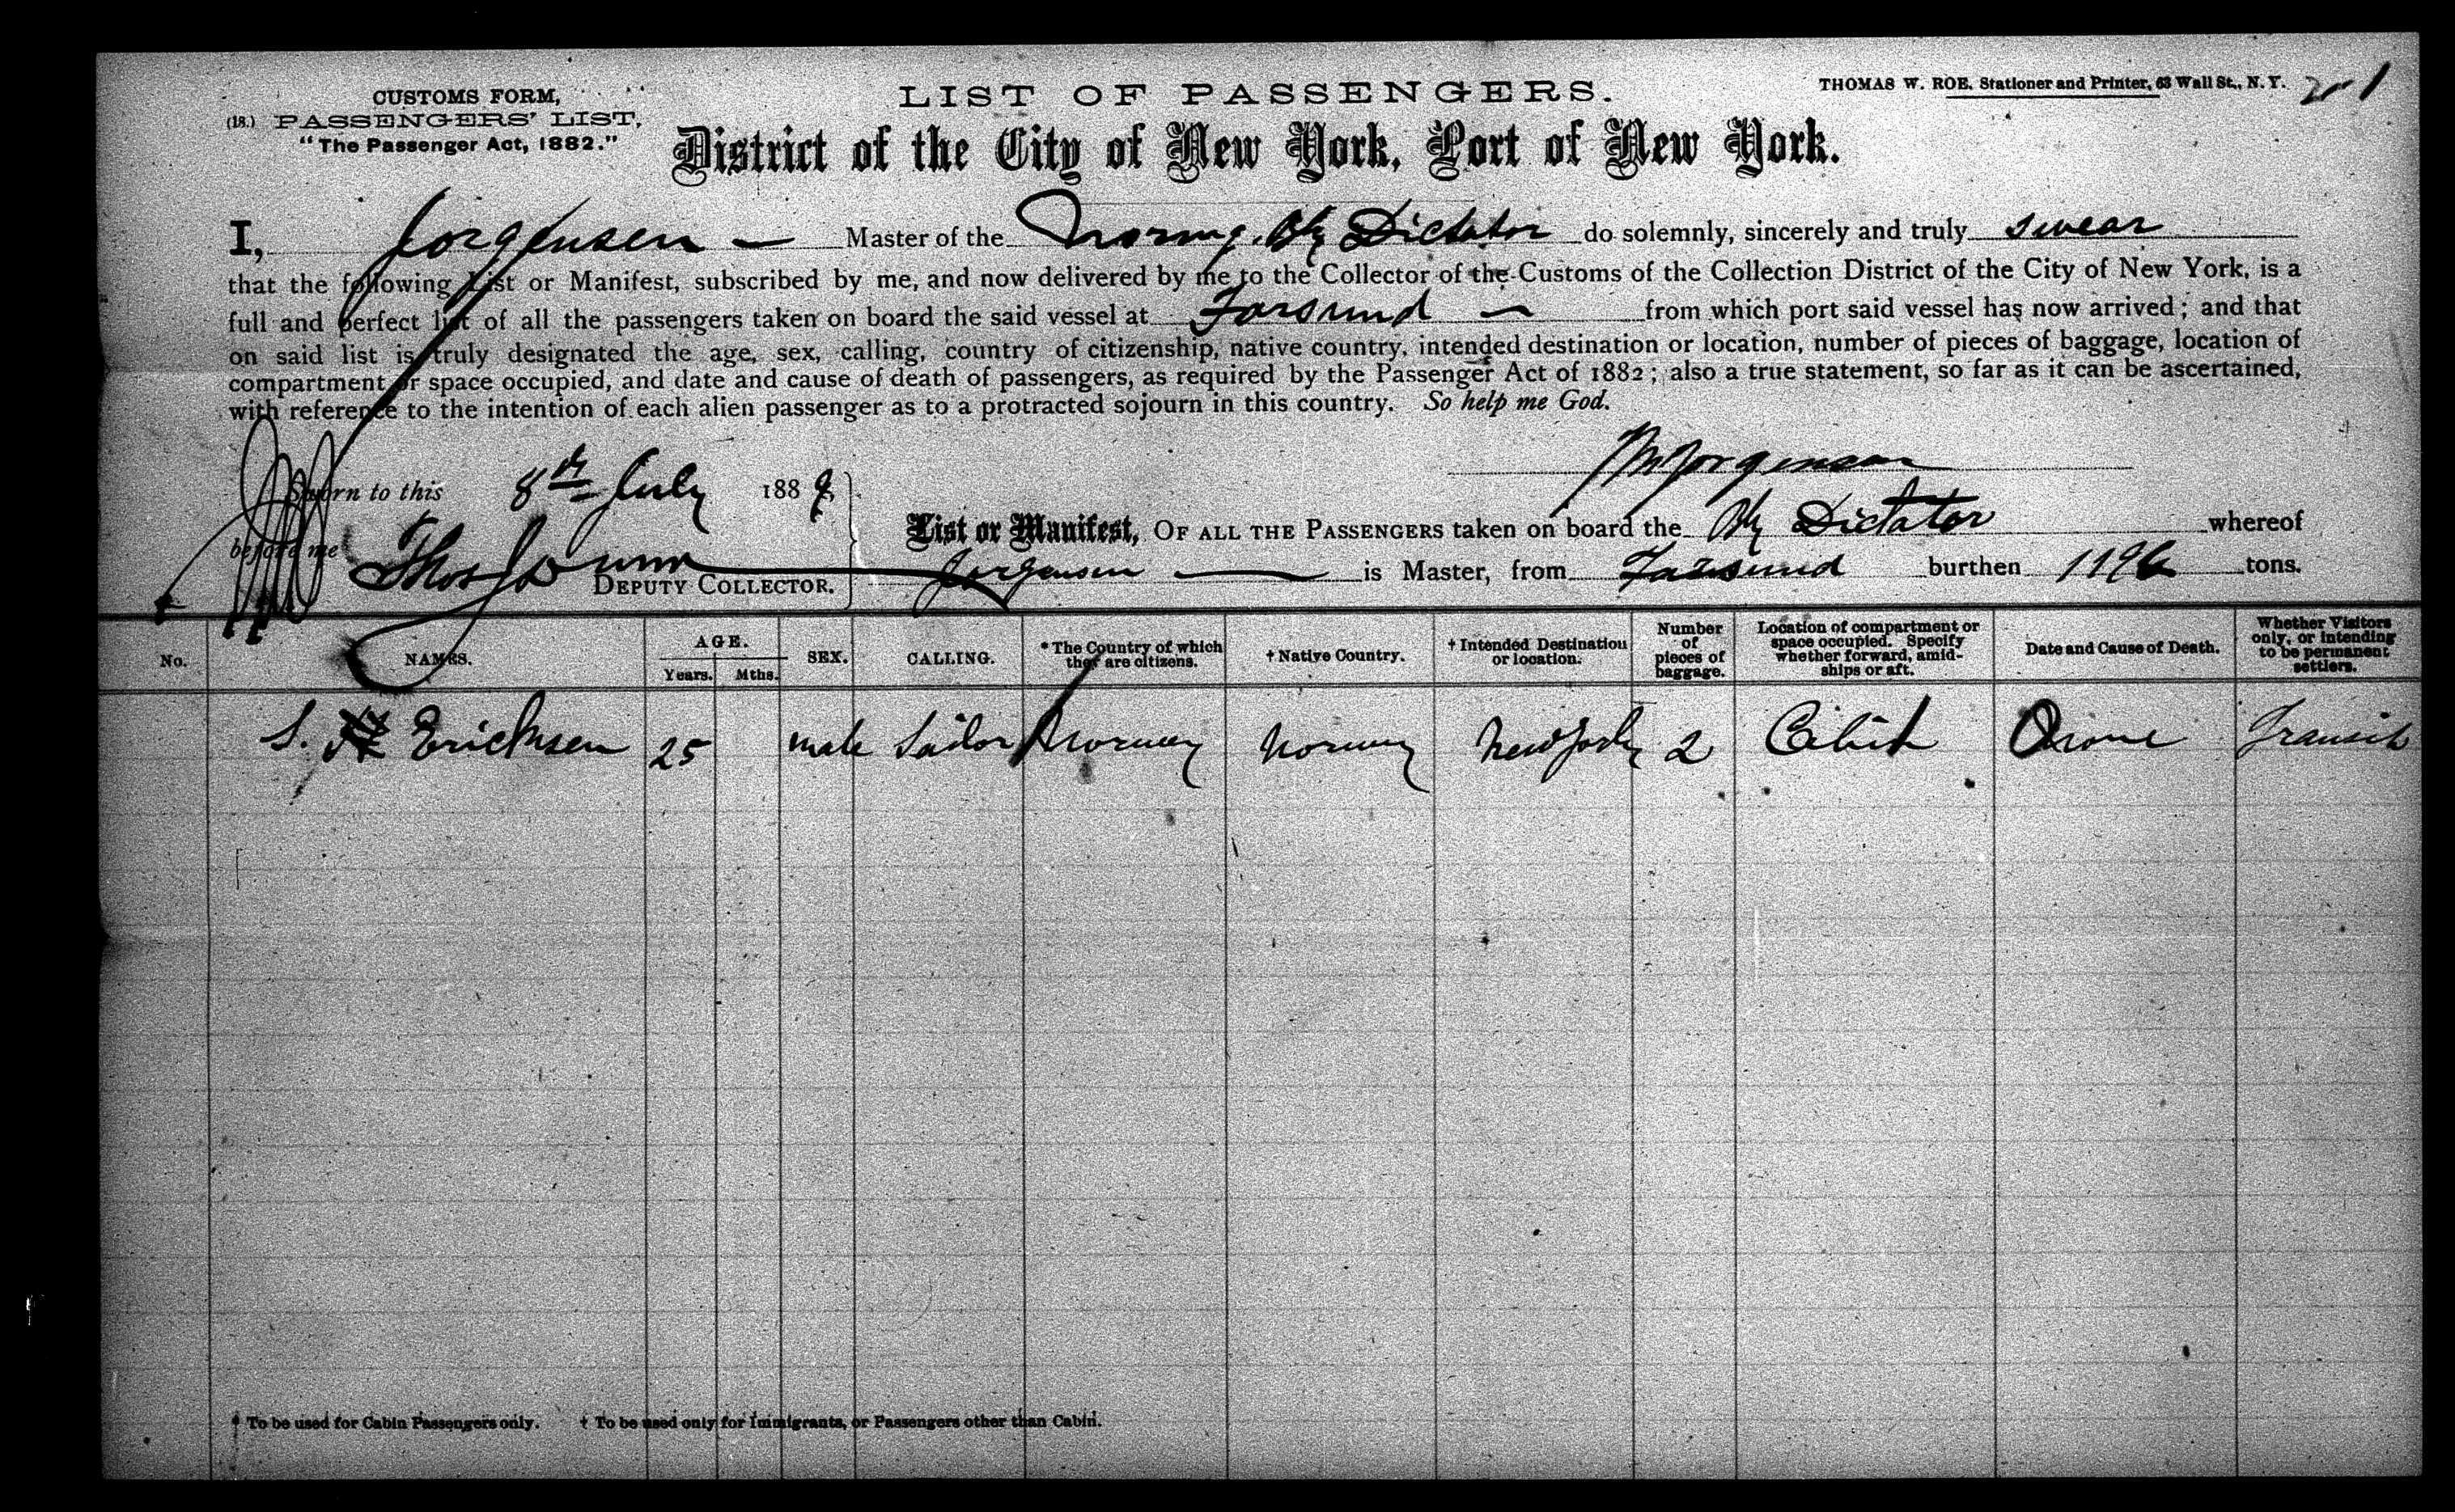 CUSTOMS FORM,
(18.) PASSENGERS' LIST,
"The Passenger Act, 1882."
LIST OF PASSENGERS.
THOMAS W. ROE, Stationer and Printer, 63 Wall St., N. Y.
District of the City of New York, Port of New York.
I, Jorgensen — Master of the Dictator do solemnly, sincerely and truly swear
that the following List or Manifest, subscribed by me, and now delivered by me to the Collector of the Customs of the Collection District of the City of New York, is a
full and perfect list of all the passengers taken on board the said vessel at Farsund — from which port said vessel has now arrived; and that
on said list is truly designated the age, sex, calling, country of citizenship, native country, intended destination or location, number of pieces of baggage, location of
compartment or space occupied, and date and cause of death of passengers, as required by the Passenger Act of 1882; also a true statement, so far as it can be ascertained,
with reference to the intention of each alien passenger as to a protracted sojourn in this country. So help me God.
Jorgensen
Sworn to this 8th July 1889
before me
DEPUTY COLLECTOR.
List or Manifest, OF ALL THE PASSENGERS taken on board the Dictator whereof
Jorgensen — is Master, from Farsund burthen 1196 tons.
No. NAMES. AGE. Years. Mths. SEX. CALLING. * The Country of which they are citizens. † Native Country. † Intended Destination or location. Number of pieces of baggage. Location of compartment or space occupied. Specify whether forward, amidships or aft. Date and Cause of Death. Whether Visitors only, or intending to be permanent settlers.
S. Ericksen 25 male Sailor Norway Norway New York 2 None Transit
* To be used for Cabin Passengers only. † To be used only for Immigrants, or Passengers other than Cabin.